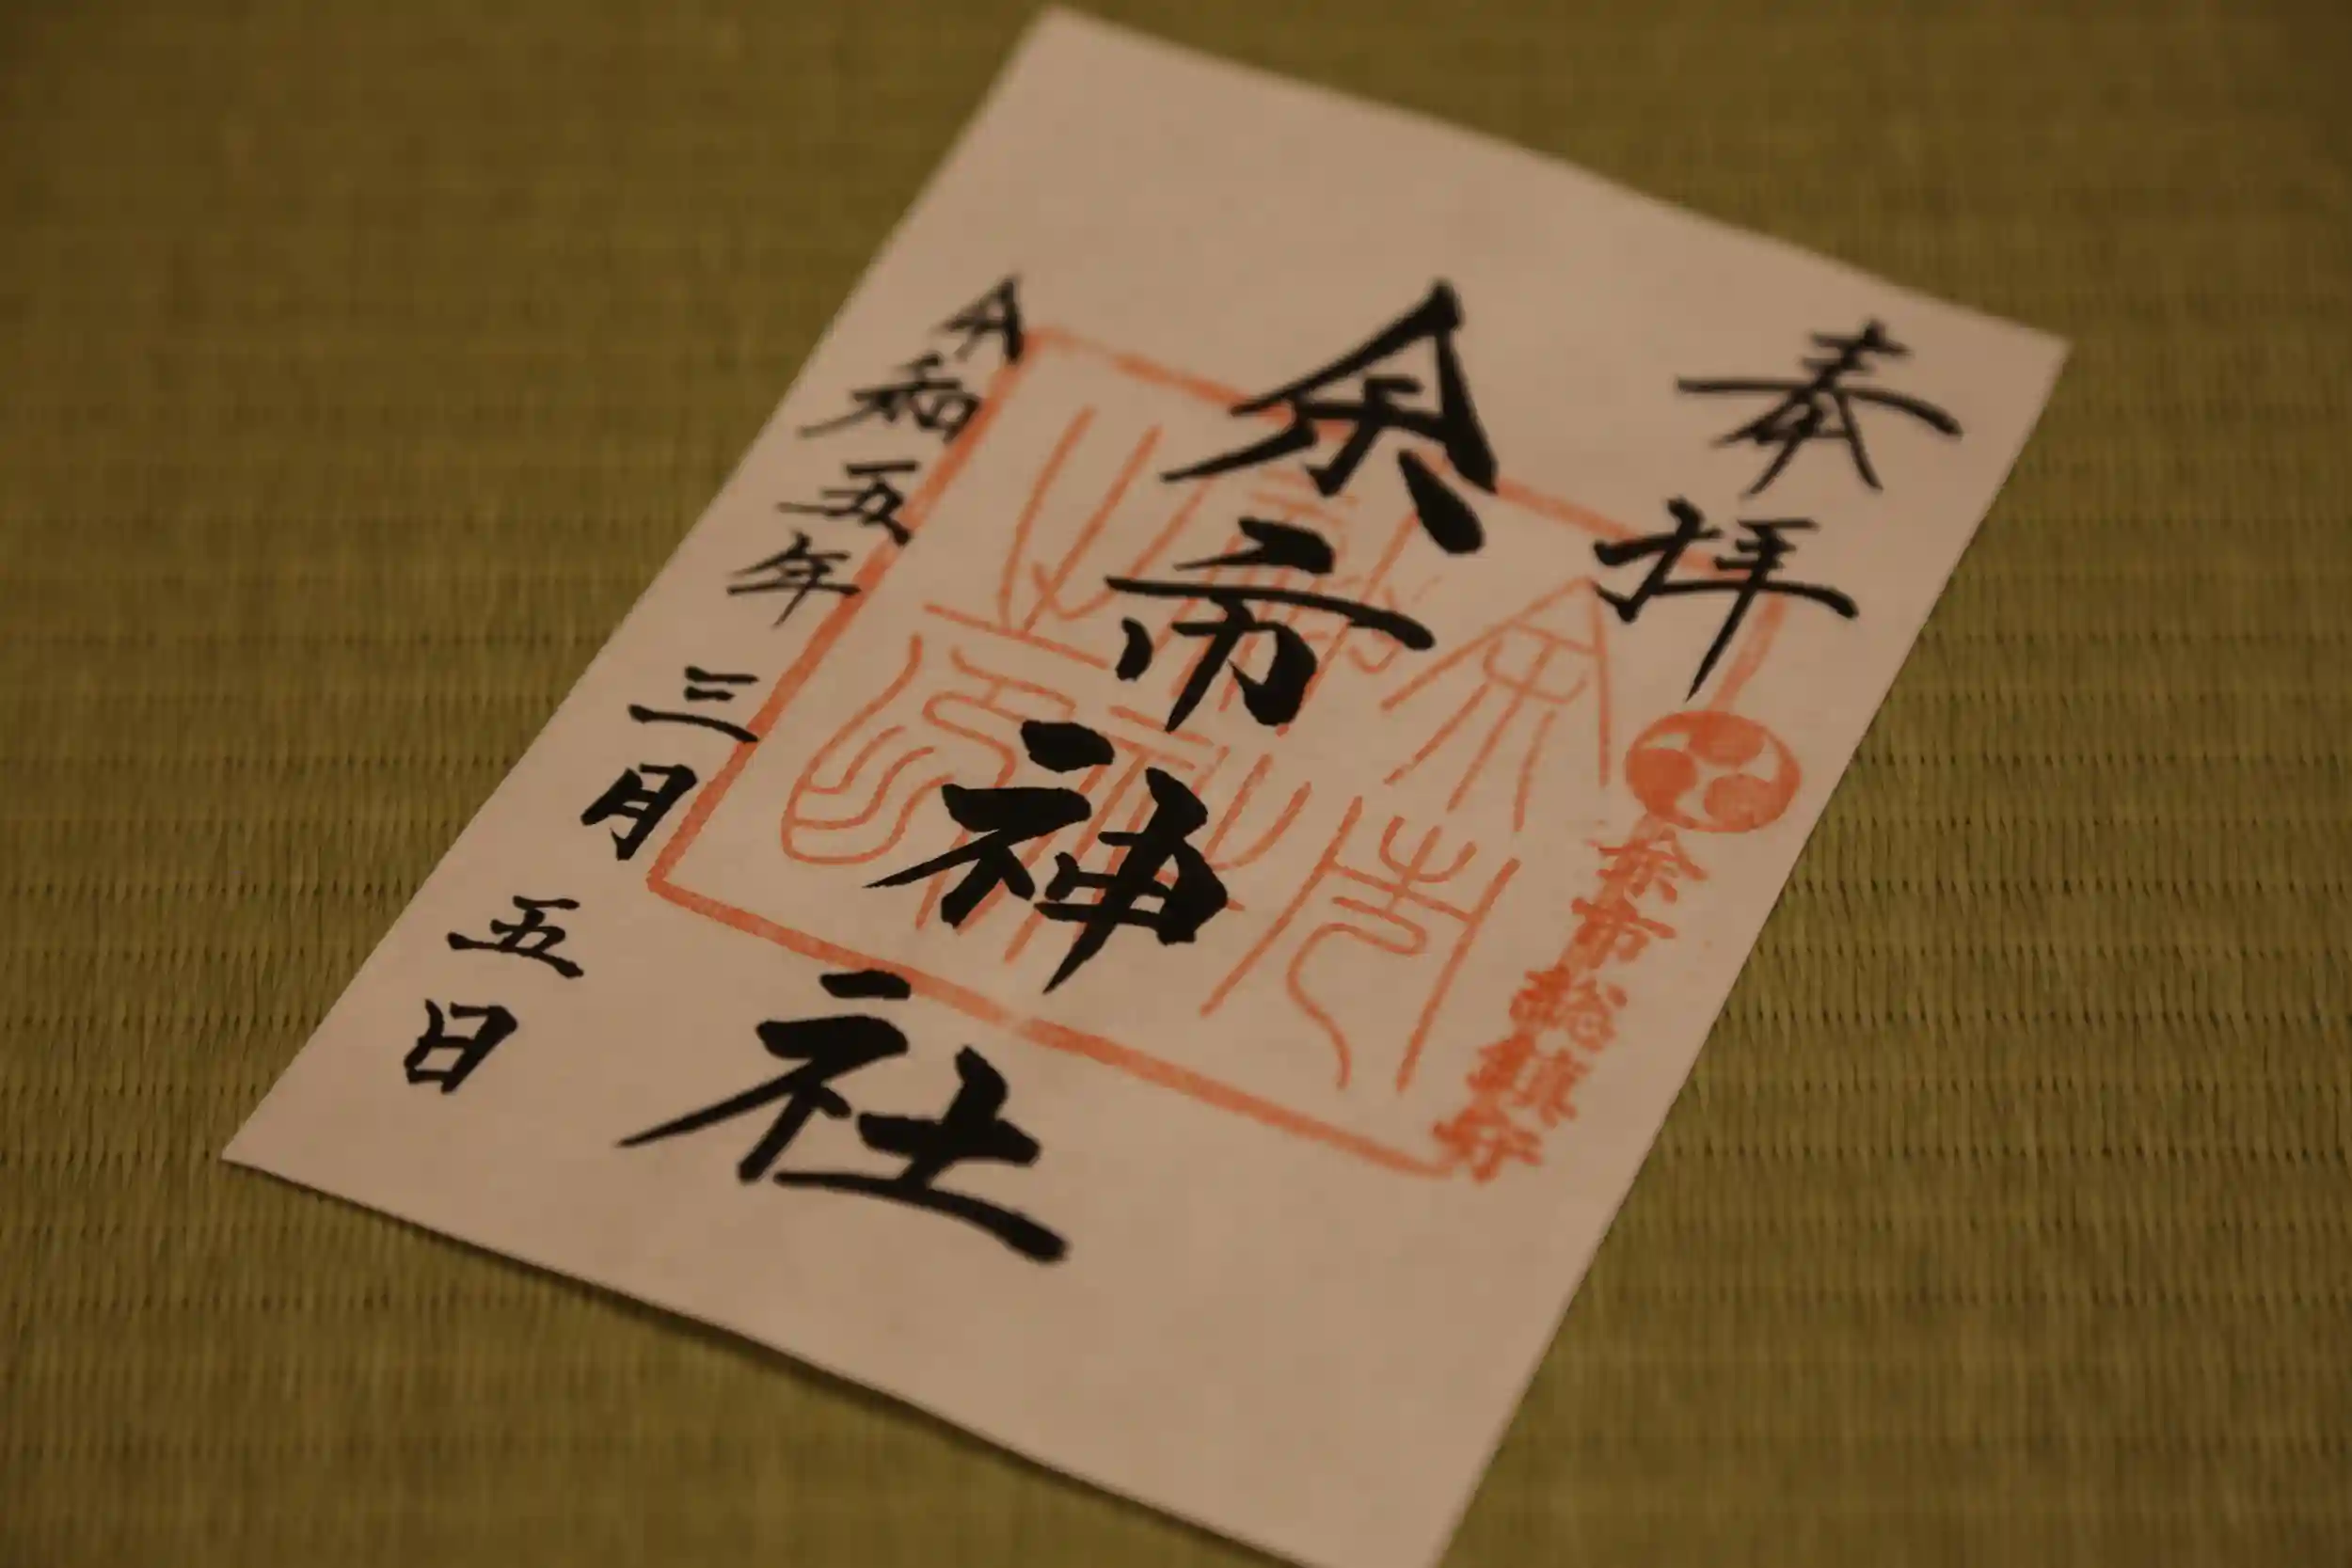 奉拝
余市総鎮守
余市神社
令和五年三月五日